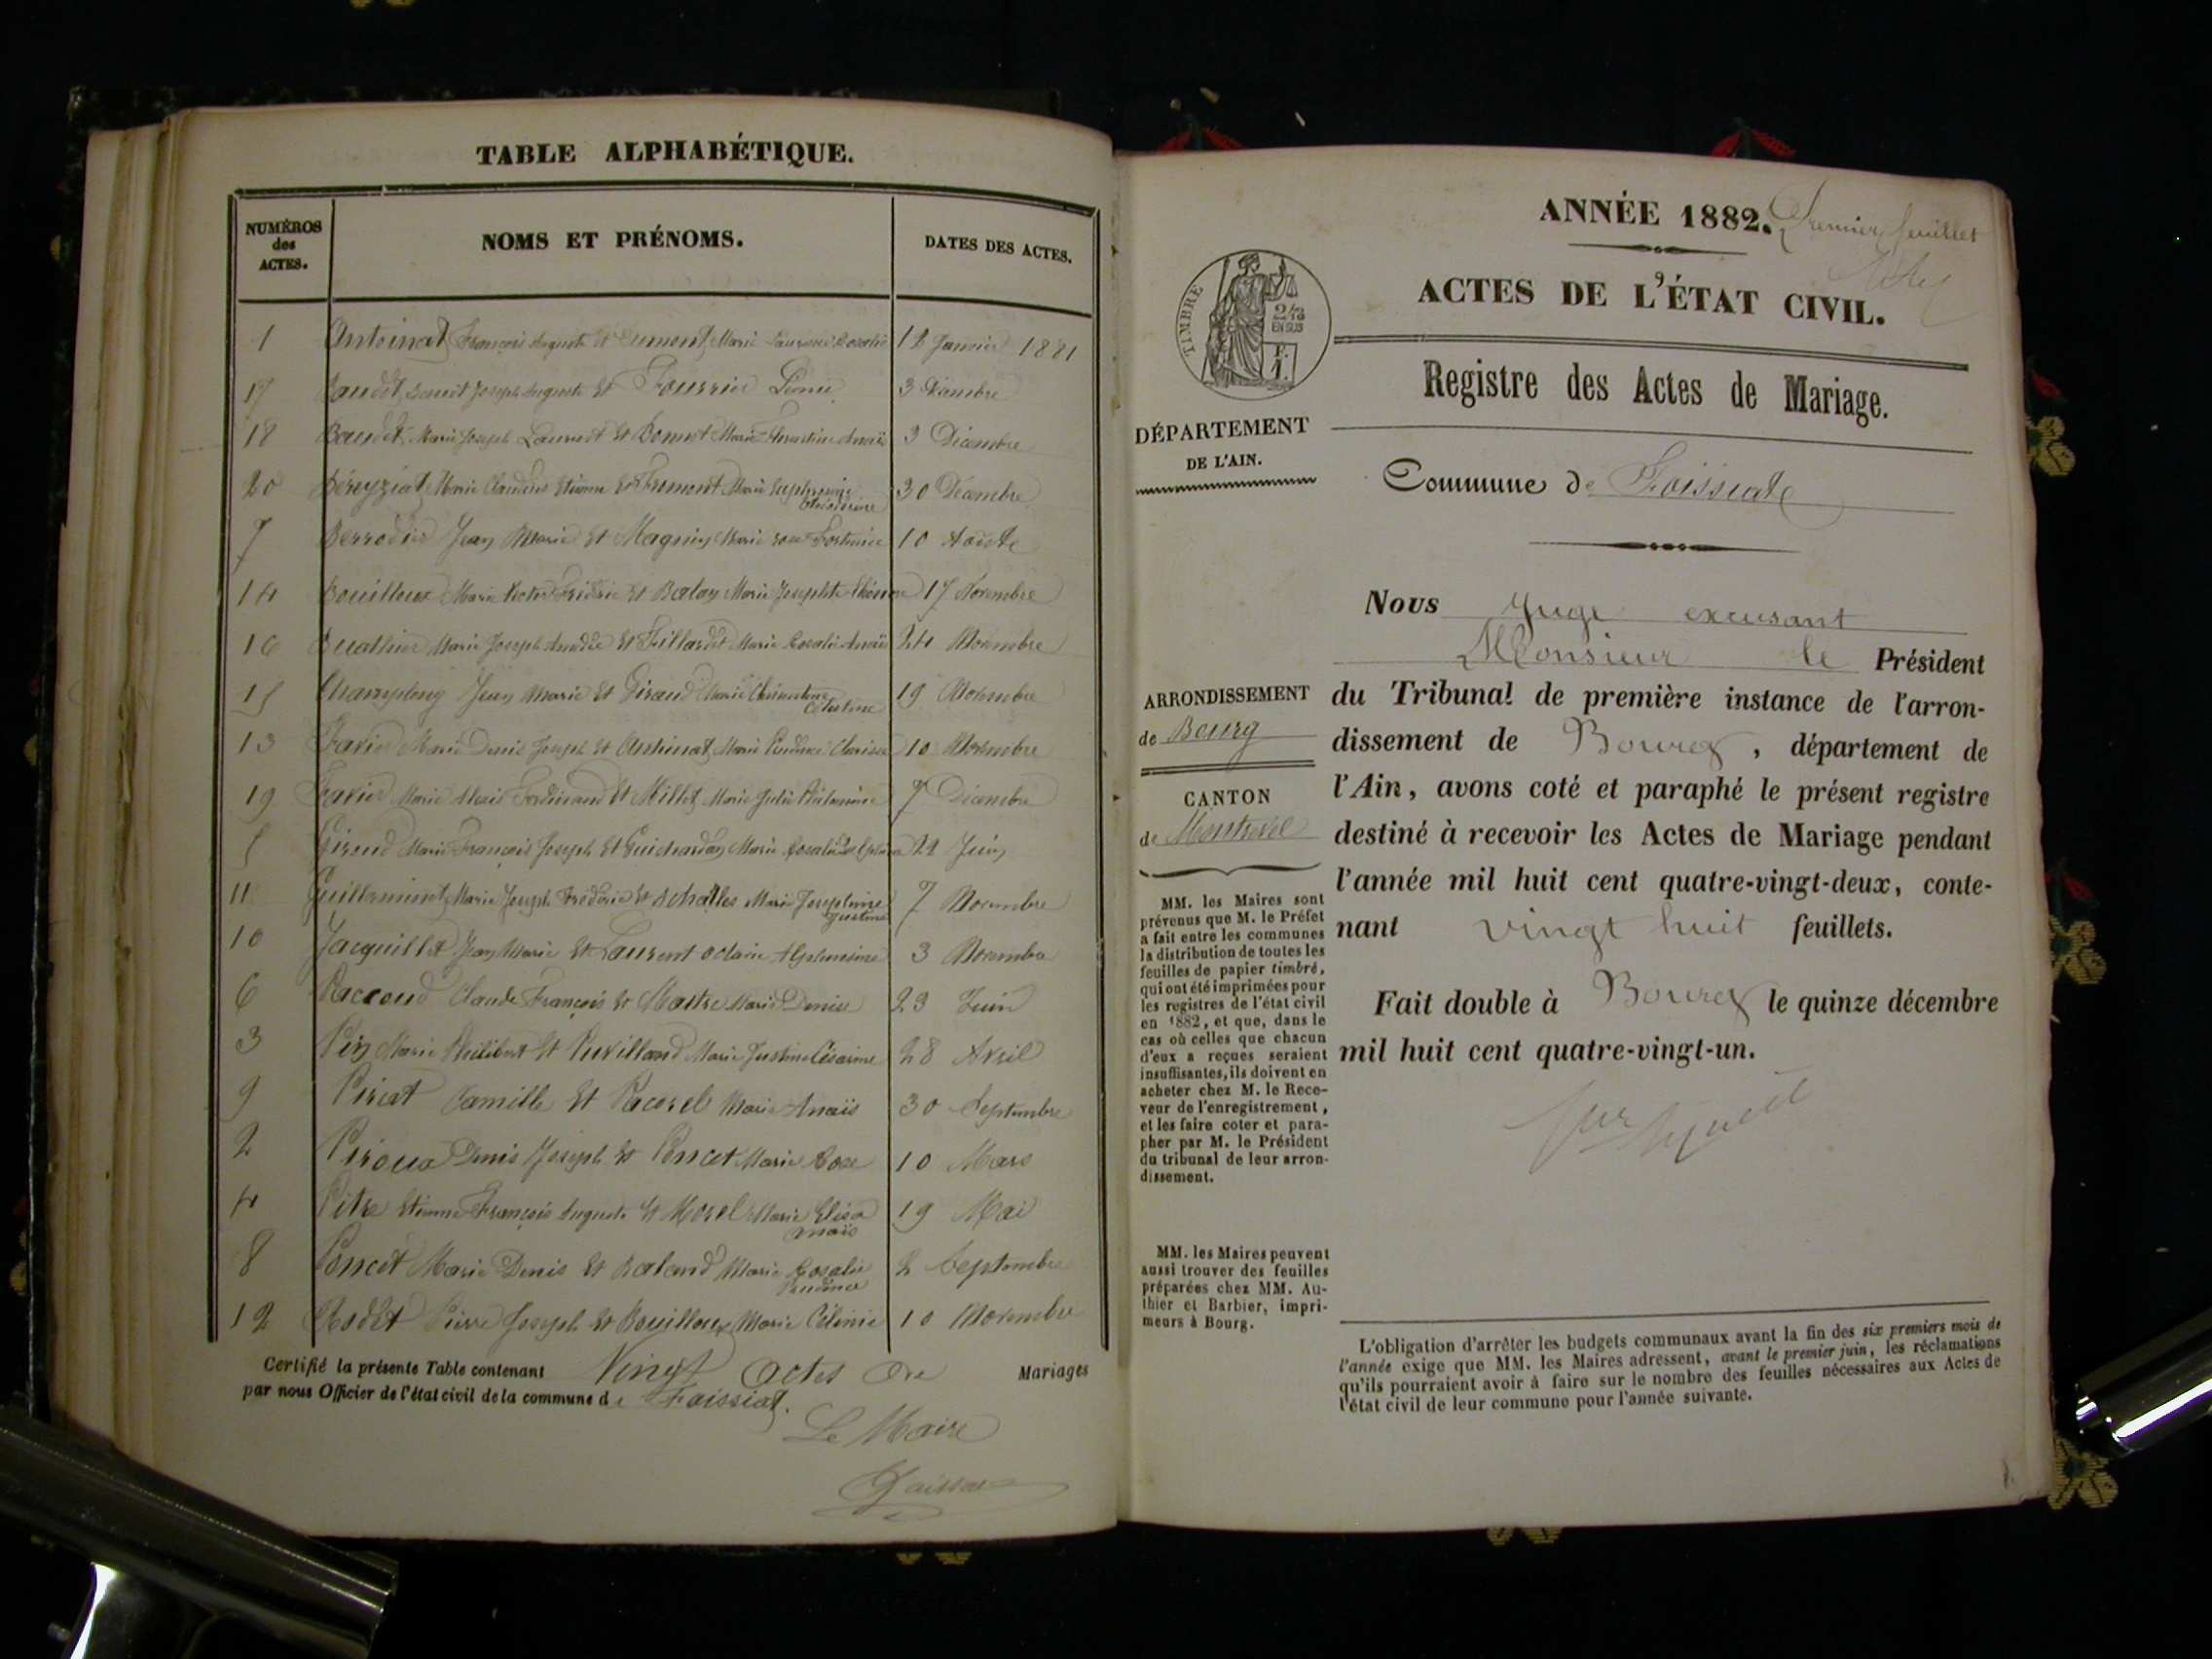 TABLE ALPHABÉTIQUE.
NUMÉROS
des
ACTES.
NOMS ET PRÉNOMS.
DATES DES ACTES.
1 Antoinat François Auguste et Marie Rosalie 18 Janvier 1881
17 Baudet Benoit Joseph Auguste et Fourrier Léonie 3 Décembre
18 Baudet Marie Joseph Laurent et Marie Anaïs 3 Décembre
20 Béreyziat Marie Claudius Etienne et Marie Euphrosine 30 Décembre
7 Berrodier Jean Marie et Magnin Marie Rose Fortunée 10 Aoûte
14 Bouilloux Marie Victor Frédéric et Balay Marie Josephte 17 Novembre
16 Buathier Marie Joseph Amédée et Fillardet Marie Rosalie Anaïs 24 Novembre
15 Champlouy Jean Marie et Giraud Marie
Célestine 19 Novembre
13 Favier Marie Denis Joseph et Antoinat Marie Prudence Clarisse 10 Novembre
19 Favier Marie Alexis Ferdinand et Millet Marie Julie Philomène 7 Décembre
5 Giroud Marie François Joseph et Guichardan Marie Rosalie 22 Juin
11 Guilleminot Marie Joseph Frédéric et Marie Joséphine
Justine 7 Novembre
10 Jacquillet Jean Marie et Laurent Octavie 3 Novembre
6 Paccoud Claude François et Marie Denise 23 Juin
3 Pin Marie Philibert et Puvilland Marie Justine Césarine 28 Avril
9 Piriat Camille et Pacorel Marie Anaïs 30 Septembre
2 Piroux Denis Joseph et Poncet Marie Rose 10 Mars
4 Pitre Etienne François Auguste et Morel Marie Elisa
Anaïs 19 Mai
8 Poncet Marie Denis et Marie Rosalie
Prudence 2 Septembre
12 Rodet Pierre Joseph et Bouilloux Marie Célinie 10 Novembre
Certifié la présente Table contenant Vingt actes de Mariages
par nous Officier de l'état civil de la commune de Foissiat.
Le Maire
ANNÉE 1882. Premier feuillet
ACTES DE L'ÉTAT CIVIL.
TIMBRE
2/10
EN SUS
Registre des Actes de Mariage.
DÉPARTEMENT
DE L'AIN.
Commune de Foissiat
Nous Juge excusant
Monsieur le Président
du Tribunal de première instance de l'arron-
dissement de Bourg, département de
l'Ain, avons coté et paraphé le présent registre
destiné à recevoir les Actes de Mariage pendant
l'année mil huit cent quatre-vingt-deux, conte-
nant vingt huit feuillets.
Fait double à Bourg le quinze décembre
mil huit cent quatre-vingt-un.
ARRONDISSEMENT
de Bourg
CANTON
de Montrevel
MM. les Maires sont
prévenus que M. le Préfet
a fait entre les communes
la distribution de toutes les
feuilles de papier timbré,
qui ont été imprimées pour
les registres de l'état civil
en 1882, et que, dans le
cas où celles que chacun
d'eux a reçues seraient
insuffisantes, ils doivent en
acheter chez M. le Rece-
veur de l'enregistrement,
et les faire coter et para-
pher par M. le Président
du tribunal de leur arron-
dissement.
MM. les Maires peuvent
aussi trouver des feuilles
préparées chez MM. Au-
thier et Barbier, impri-
meurs à Bourg.
L'obligation d'arrêter les budgets communaux avant la fin des six premiers mois de
l'année exige que MM. les Maires adressent, avant le premier juin, les réclamations
qu'ils pourraient avoir à faire sur le nombre des feuilles nécessaires aux Actes de
l'état civil de leur commune pour l'année suivante.